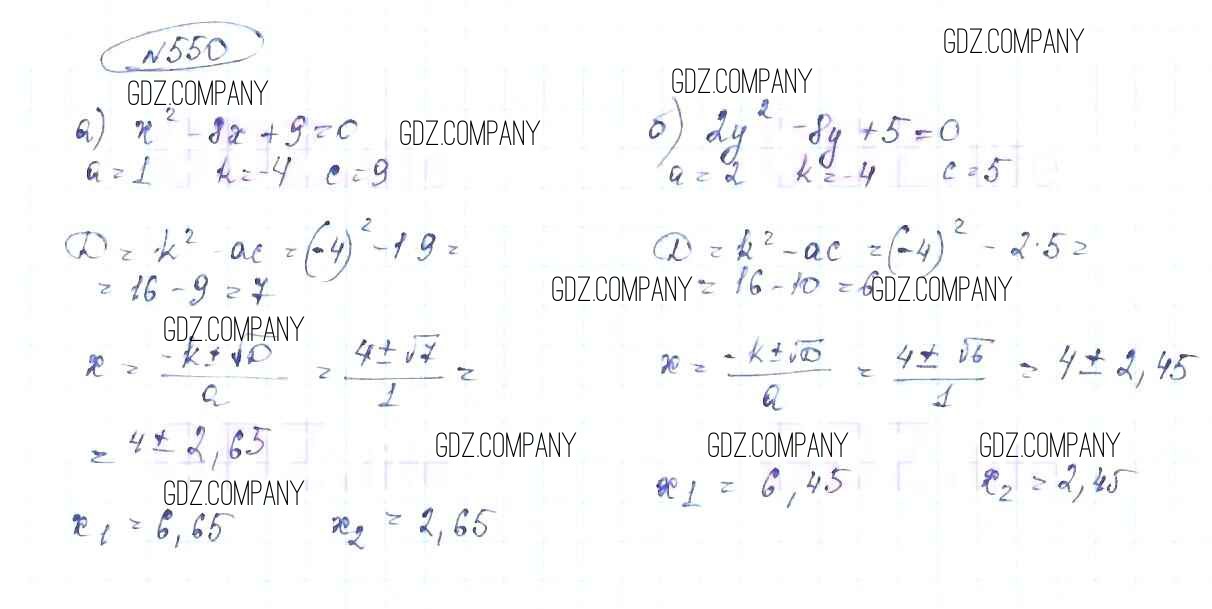 №550
GDZ.COMPANY
GDZ.COMPANY
GDZ.COMPANY
а) x² - 8x + 9 = 0
GDZ.COMPANY
a = 1 k = -4 c = 9
D = k² - ac = (-4)² - 1 9 =
= 16 - 9 = 7
GDZ.COMPANY
x = -k ± √D / a = 4 ± √7 / 1 =
= 4 ± 2,65
GDZ.COMPANY
GDZ.COMPANY
x₁ = 6,65 x₂ = 2,65
б) 2y² - 8y + 5 = 0
a = 2 k = -4 c = 5
D = k² - ac = (-4)² - 2·5 =
GDZ.COMPANY = 16 - 10 = 6 GDZ.COMPANY
x = -k ± √D / a = 4 ± √6 / 1 = 4 ± 2,45
GDZ.COMPANY GDZ.COMPANY
x₁ = 6,45 x₂ = 2,45